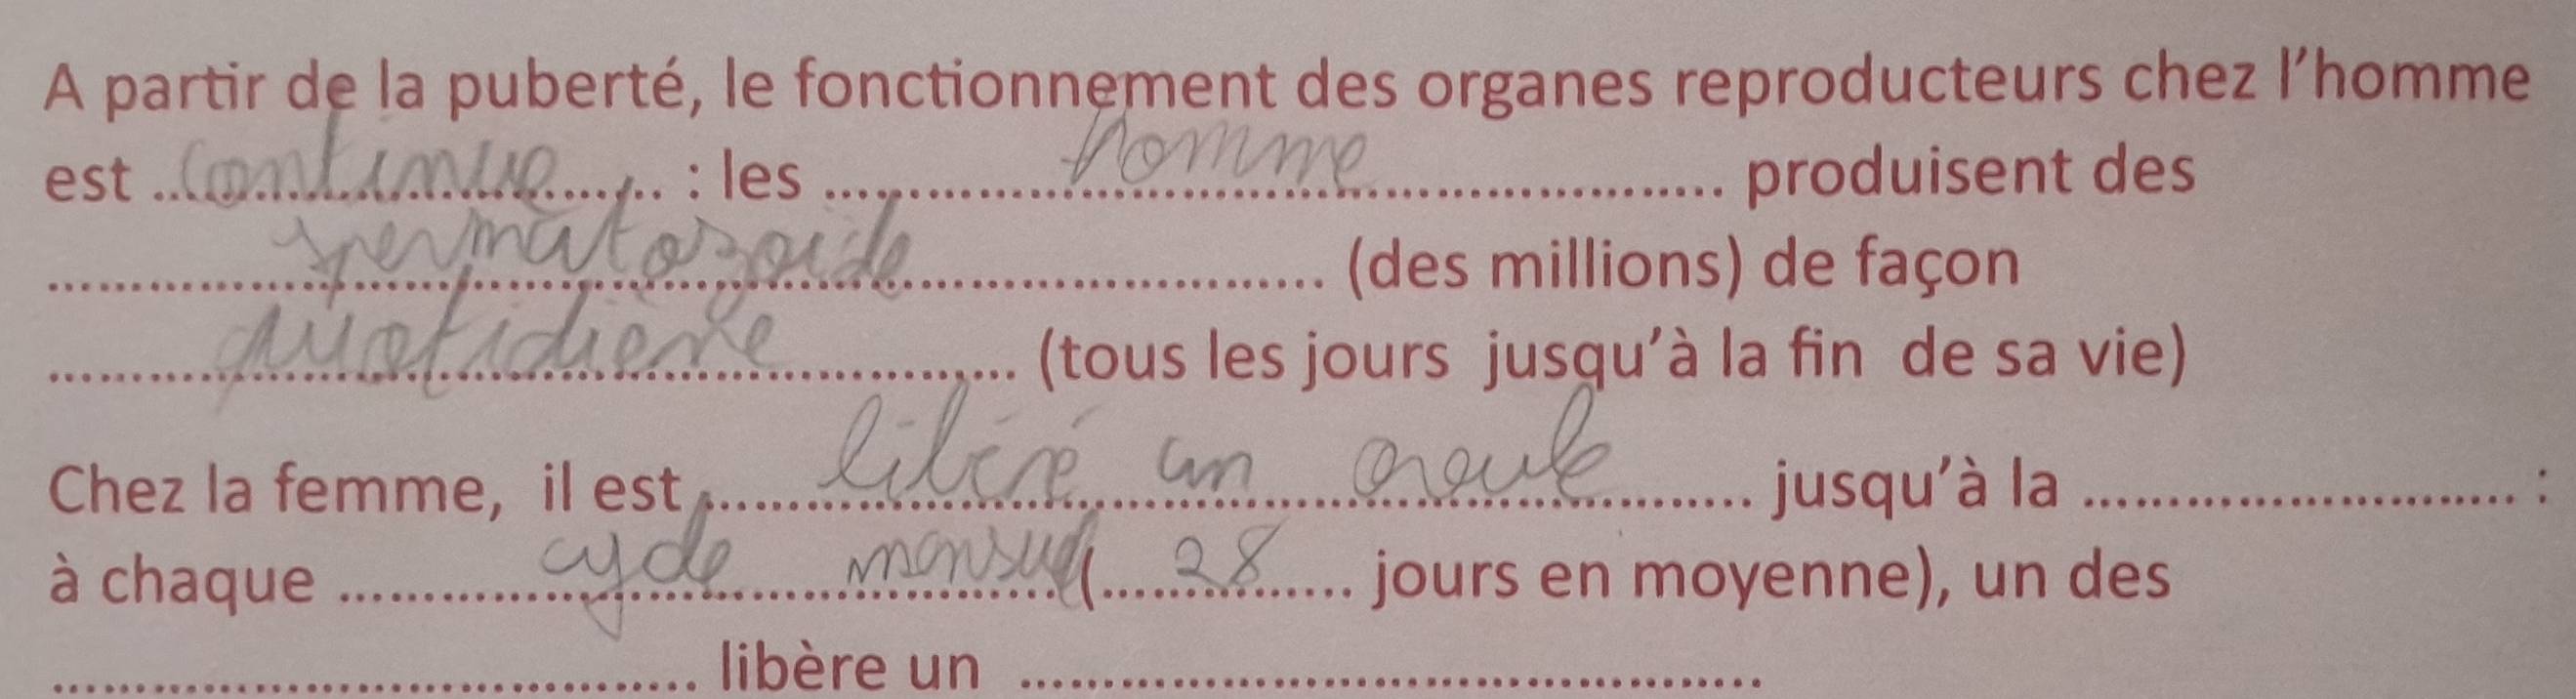 A partir de la puberté, le fonctionnement des organes reproducteurs chez l'homme
est ..continue.. : les ..homme.. produisent des
..spermatozoide.. (des millions) de façon
..quotidiene.. (tous les jours jusqu'à la fin de sa vie)
Chez la femme, il est ..libéré un ovule.. jusqu'à la .......... :
à chaque ..cycle mensuel (..28.. jours en moyenne), un des
.......... libère un ..........